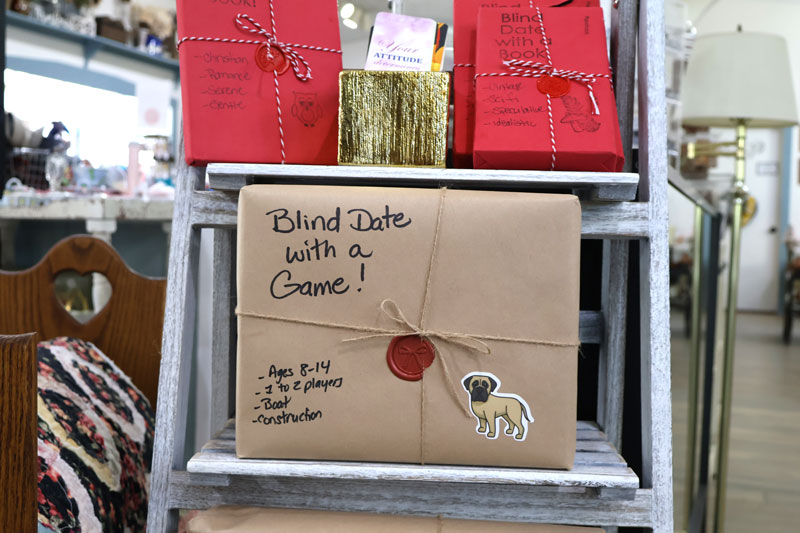 BOOK!
- Christian
- Romance
- Serene
Your
ATTITUDE
determines
Blind
Blind
Date
with a
Book
- Vintage
Sci fi
- Speculative
Blind Date
with a
Game!
- Ages 8-14
- 1 to 2 players
- Boat
- construction